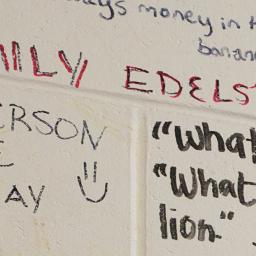 money in t
banan
ILY EDELS
ERSON
E
AY
"What
"What
lion."